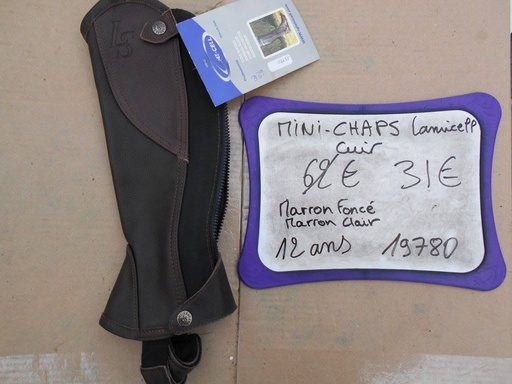 MINI-CHAPS Lamicell
cuir
62€ 31€
Marron Foncé
Marron Clair
12 ans 19780
LS